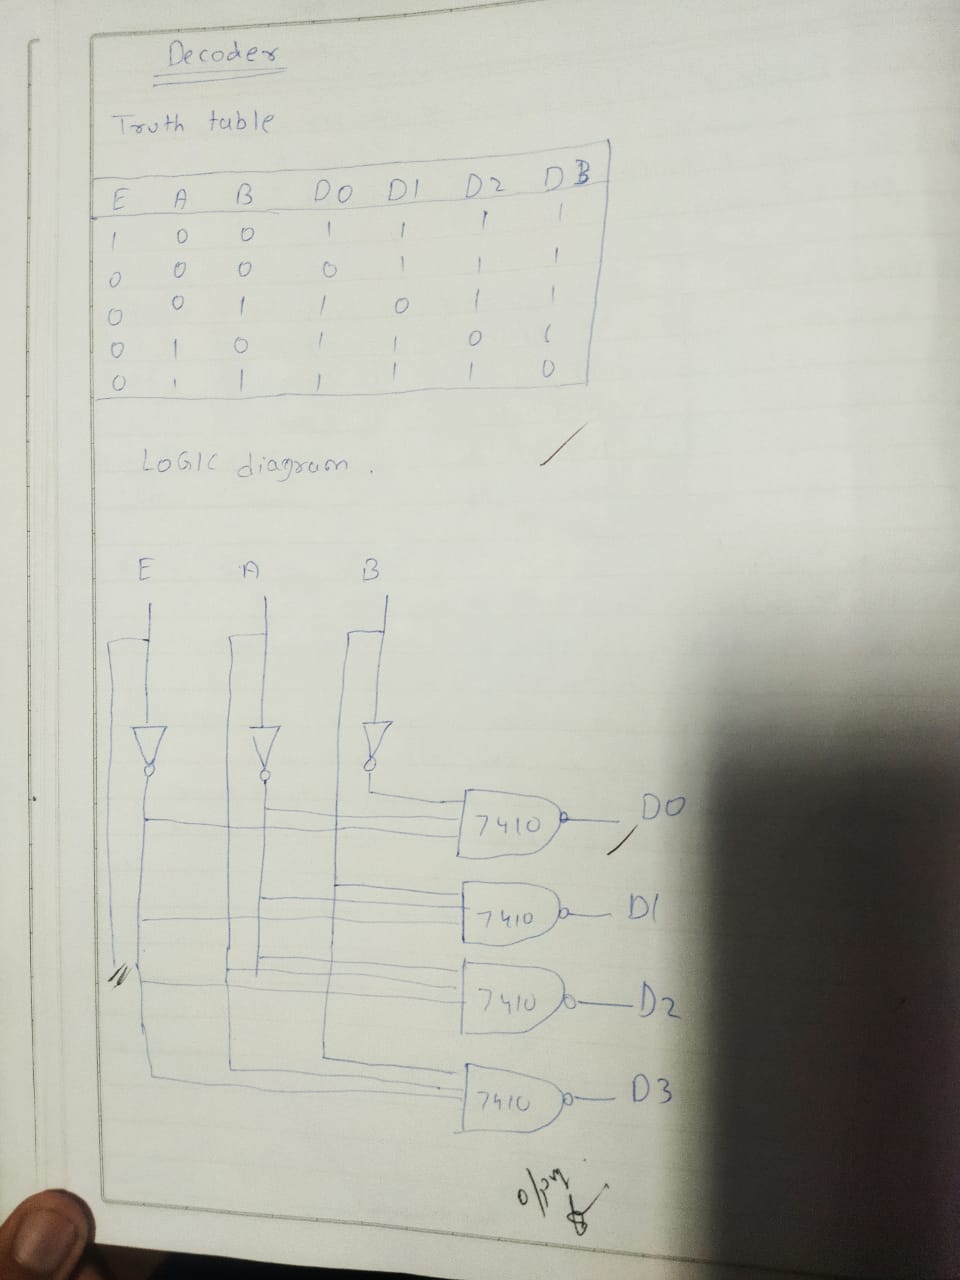 Decoder
Truth table
E A B D0 D1 D2 D3
1 0 0 1 1 1 1
0 0 0 0 1 1 1
0 0 1 1 0 1 1
0 1 0 1 1 0 1
0 1 1 1 1 1 0
LOGIC diagram .
E A B
7410 D0
7410 D1
7410 D2
7410 D3